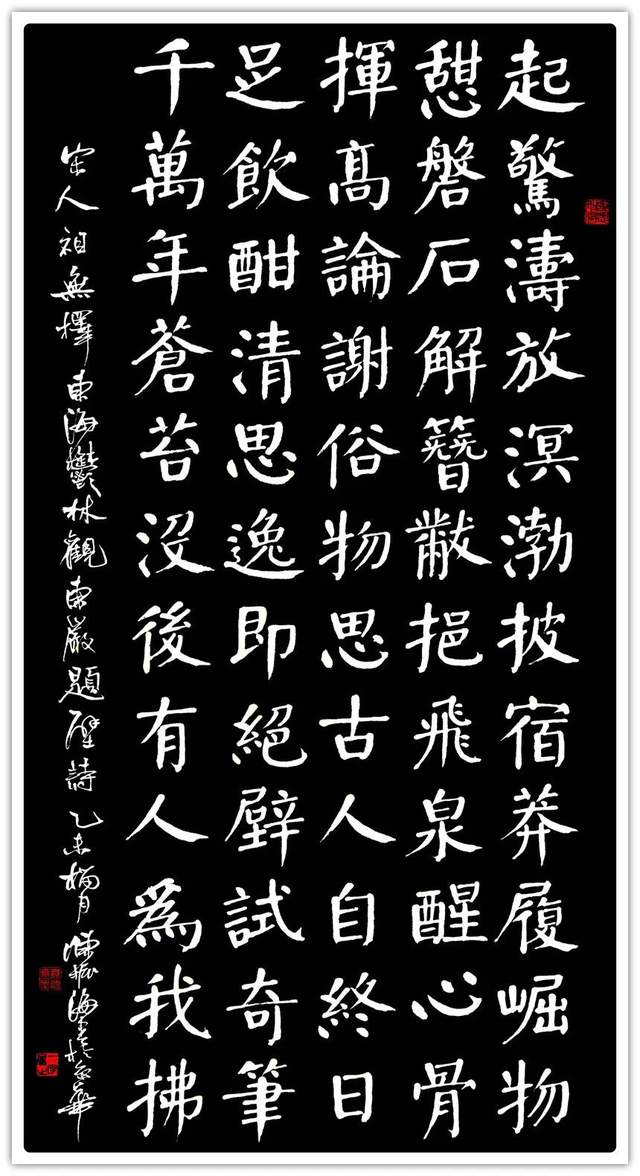 起驚濤放溟渤披宿莽履崛物
憇磐石解簪黻挹飛泉醒心骨
揮髙論謝俗物思古人自終日
足飲酣清思逸即絕壁試奇筆
千萬年蒼苔没後有人為我拂
宋人祖無擇東海鬱林觀東巖題壁詩乙未